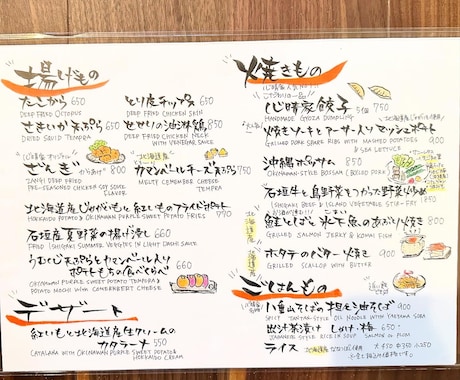 揚げもの
たこから 650
DEEP FRIED OCTOPUS
とり皮チップス 650
DEEP FRIED CHICKEN SKIN
さきいか天ぷら 650
DRIED SQUID TEMPURA
せせりの油淋鶏 750
DEEP FRIED CHICKEN NECK
WITH VINEGAR SAUCE
ざんぎ 800
"ZANGI" DEEP FRIED
PRE-SEASONED CHICKEN SOY SAUCE
FLAVOR
カマンベールチーズ天ぷら 750
MELTY CEMEMBER CHEESE
TEMPRA
北海道産じゃがいもと紅いものフライドポテト 770
HOKKAIDO POTATO & OKINAWAN PURPLE SWEET POTATO FRIES
石垣産夏野菜の揚げ浸し 660
FRIED ISHIGAKI SUMMER VERGIES IN LIGHT DASHI SAUCE
うむくじ天ぷらとカマンベール入り
ポテトもちの食べくらべ 660
OKINAWAN PURPLE SWEET POTATO TEMPURA &
POTATO MOCHI WITH CAMENBERT CHEESE
デザート
紅いもと北海道産生クリームの
カタラーナ 550
CATALANA WITH OKINAWAN PURPLE SWEET POTATO &
HOKKAIDO CREAM
焼きもの
心晴家餃子 5個 750
HANDMADE GYOZA DUMPLING
焼きソーキとアーサー入りマッシュポテト
GRILLED PORK SPARE RIB WITH MASHED POTATOES
& SEA LETTUCE
沖縄ポッサム 850
OKINAWAN-STYLE BOSSAM (BOILED PORK)
石垣牛と島野菜をつかった野菜炒め
ISHIGAKI BEEF & ISLAND VEGETABLE STIR-FRY 1850
鮭とば、氷下魚のあぶり焼き 800
GRILLED SALMON JERKY & KOMAI FISH
ホタテのバター焼き 800
GRILLED SCALLOP WITH BUTTER
ごはんもの
八重山そばの担々油そば 900
SPICY TANTAN-STYLE OIL NOODLE WITH YAEYAMA SOBA
出汁茶漬け しゃけ・梅 650
JAPANESE STYLE RICE IN SOUP SALMON or PLUM
ライス 北海道産ななつぼし使用 大 450 中 350 小 250